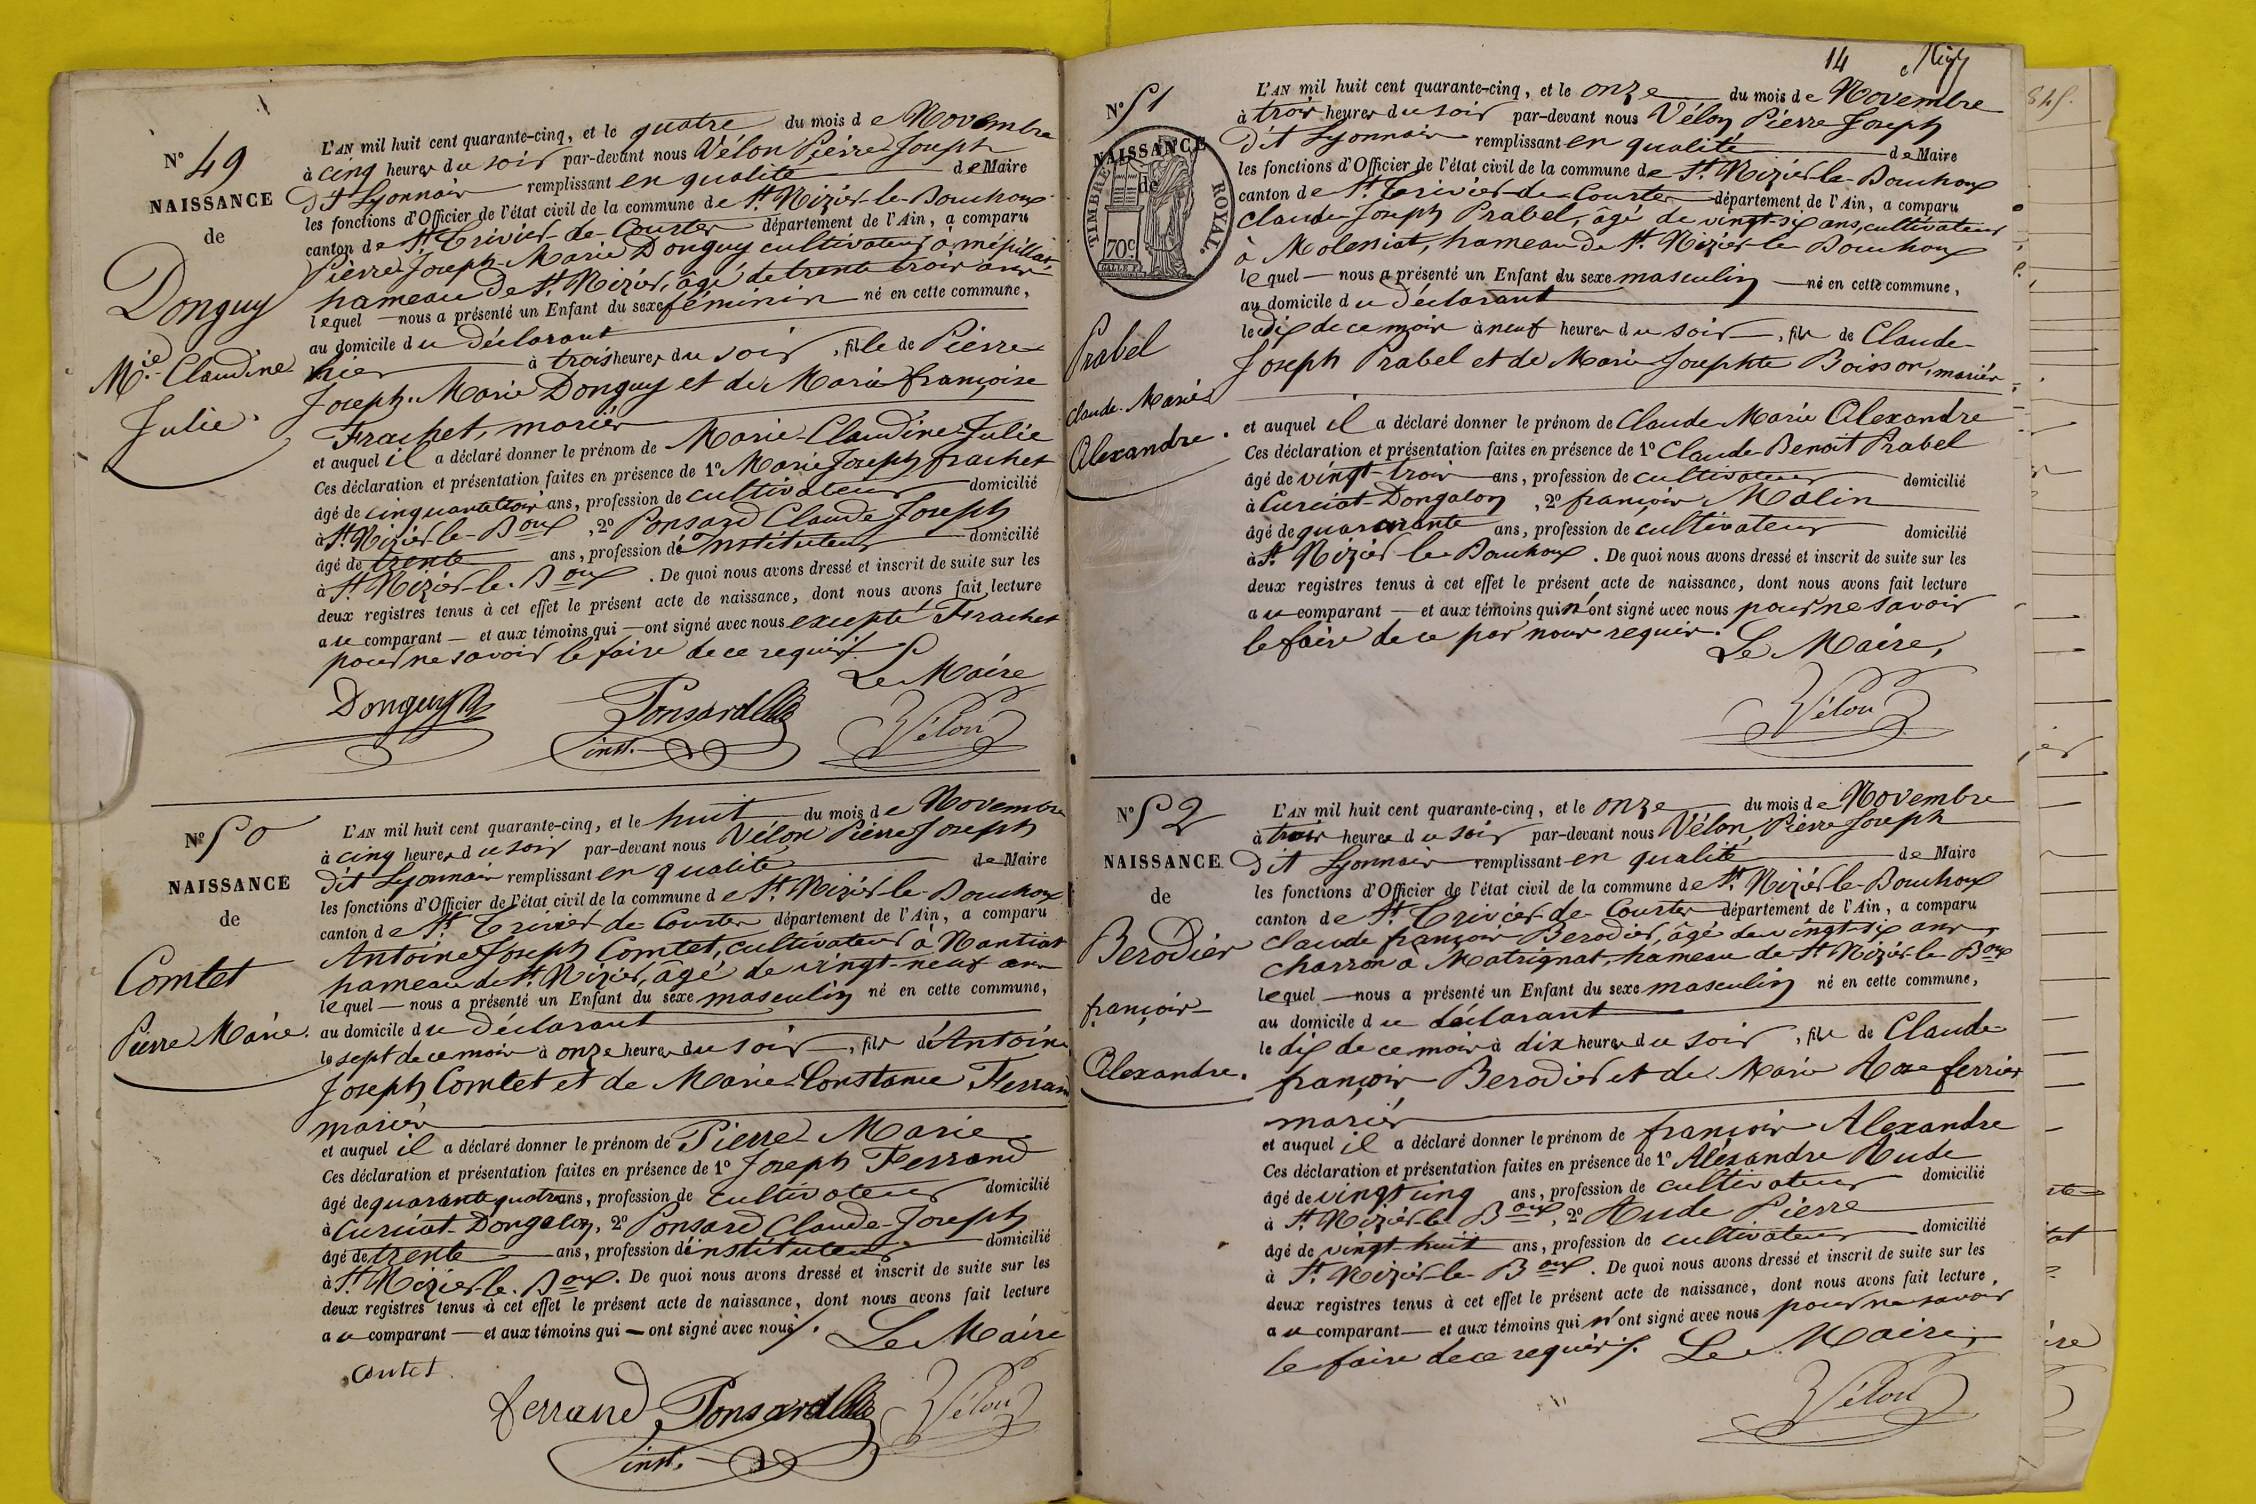 N° 49
NAISSANCE
de
Donguy
M.ie Claudine
Julie.
L'AN mil huit cent quarante-cinq, et le quatre du mois d e Novembre
à cinq heures du soir par-devant nous Vélon Pierre Joseph
dit Lyonnais remplissant en qualité de Maire
les fonctions d'Officier de l'état civil de la commune de St. Nizier-le-Bouchoux
canton de St. Trivier-de-Courtes département de l'Ain, a comparu
Pierre Joseph-Marie Donguy cultivateur à mépillat
hameau de St. Nizier, âgé de trente trois ans
lequel nous a présenté un Enfant du sexe féminin né en cette commune,
au domicile d u déclarant
hier à trois heures du soir, fille de Pierre
Joseph-Marie Donguy et de Marie françoise
Frachet, mariés
et auquel il a déclaré donner le prénom de Marie-Claudine-Julie
Ces déclaration et présentation faites en présence de 1° Marie Joseph frachet
âgé de cinquante trois ans, profession de cultivateur domicilié
à St. Nizier-le-Boux, 2° Ponsard Claude Joseph
âgé de trente ans, profession d'instituteur domicilié
à St. Nizier-le-Boux. De quoi nous avons dressé et inscrit de suite sur les
deux registres tenus à cet effet le présent acte de naissance, dont nous avons fait lecture
au comparant et aux témoins qui ont signé avec nous excepté Frachet
pour ne savoir le faire de ce requis.
Le Maire
Donguy Ponsard Vélon
inst.
N° 50
NAISSANCE
de
Comtet
Pierre Marie.
L'AN mil huit cent quarante-cinq, et le huit du mois d e Novembre
à cinq heures du soir par-devant nous Vélon Pierre Joseph
dit Lyonnais remplissant en qualité de Maire
les fonctions d'Officier de l'état civil de la commune d e St. Nizier-le-Bouchoux
canton d e St. Trivier de Courtes département de l'Ain, a comparu
Antoine Joseph Comtet, cultivateur à Nantiat
hameau de St. Nizier, âgé de vingt-neuf ans
lequel nous a présenté un Enfant du sexe masculin né en cette commune,
au domicile d u déclarant
le sept de ce mois à onze heures du soir, fils d'Antoine
Joseph Comtet et de Marie-Constance Ferrand
mariés
et auquel il a déclaré donner le prénom de Pierre-Marie
Ces déclaration et présentation faites en présence de 1° Joseph Ferrand
âgé de quarante quatre ans, profession de cultivateur domicilié
à Curciat-Dongalon, 2° Ponsard Claude-Joseph
âgé de trente ans, profession d'instituteur domicilié
à St. Nizier-le-Boux. De quoi nous avons dressé et inscrit de suite sur les
deux registres tenus à cet effet le présent acte de naissance, dont nous avons fait lecture
au comparant et aux témoins qui ont signé avec nous.
Le Maire
contet
ferrand Ponsard Vélon
inst.
14
N° 51
NAISSANCE
de
TIMBRE ROYAL
70c
Prabel
Claude-Marie
Alexandre.
L'AN mil huit cent quarante-cinq, et le onze du mois de Novembre
à trois heures du soir par-devant nous Vélon Pierre Joseph
dit Lyonnais remplissant en qualité de Maire
les fonctions d'Officier de l'état civil de la commune de St. Nizier-le-Bouchoux
canton de St. Trivier-de-Courtes département de l'Ain, a comparu
Claude-Joseph Prabel, âgé de vingt-six ans, cultivateur
à Moleniat, hameau de St. Nizier-le-Bouchoux
lequel nous a présenté un Enfant du sexe masculin né en cette commune,
au domicile d u déclarant
le dix de ce mois à neuf heures du soir, fils de Claude
Joseph Prabel et de Marie Josephte Boisson, mariés
et auquel il a déclaré donner le prénom de Claude Marie Alexandre
Ces déclaration et présentation faites en présence de 1° Claude Benoît Prabel
âgé de vingt-trois ans, profession de cultivateur domicilié
à Curciat-Dongalon, 2° françois Malin
âgé de quarante ans, profession de cultivateur domicilié
à St. Nizier le Bouhoux. De quoi nous avons dressé et inscrit de suite sur les
deux registres tenus à cet effet le présent acte de naissance, dont nous avons fait lecture
au comparant et aux témoins qui n'ont signé avec nous pour ne savoir
le faire de ce par nous requis.
Le Maire,
Vélon
N° 52
NAISSANCE
de
Berodier
françois
Alexandre.
L'AN mil huit cent quarante-cinq, et le onze du mois de Novembre
à trois heures du soir par-devant nous Vélon, Pierre Joseph
dit Lyonnais remplissant en qualité de Maire
les fonctions d'Officier de l'état civil de la commune de St. Nizier-le-Bouchoux
canton de St. Trivier-de-Courtes département de l'Ain, a comparu
Claude françois Berodier, âgé de vingt-six ans,
charron à Matrignat, hameau de St. Nizier-le-Boux
lequel nous a présenté un Enfant du sexe masculin né en cette commune,
au domicile d u déclarant
le dix de ce mois à dix heures du soir, fils de Claude
françois Berodier et de Marie Rose ferrier
mariés
et auquel il a déclaré donner le prénom de françois Alexandre
Ces déclaration et présentation faites en présence de 1° Aléxandre Rude
âgé de vingt cinq ans, profession de cultivateur domicilié
à St. Nizier-le-Boux, 2° Rude Pierre
âgé de vingt-huit ans, profession de cultivateur domicilié
à St. Nizier-le-Boux. De quoi nous avons dressé et inscrit de suite sur les
deux registres tenus à cet effet le présent acte de naissance, dont nous avons fait lecture,
au comparant et aux témoins qui n'ont signé avec nous pour ne savoir
le faire de ce requis.
Le Maire,
Vélon